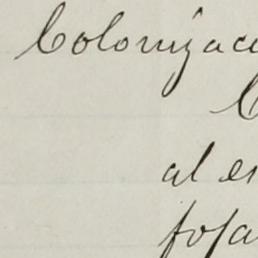 Colonizac
C
al es
fosa